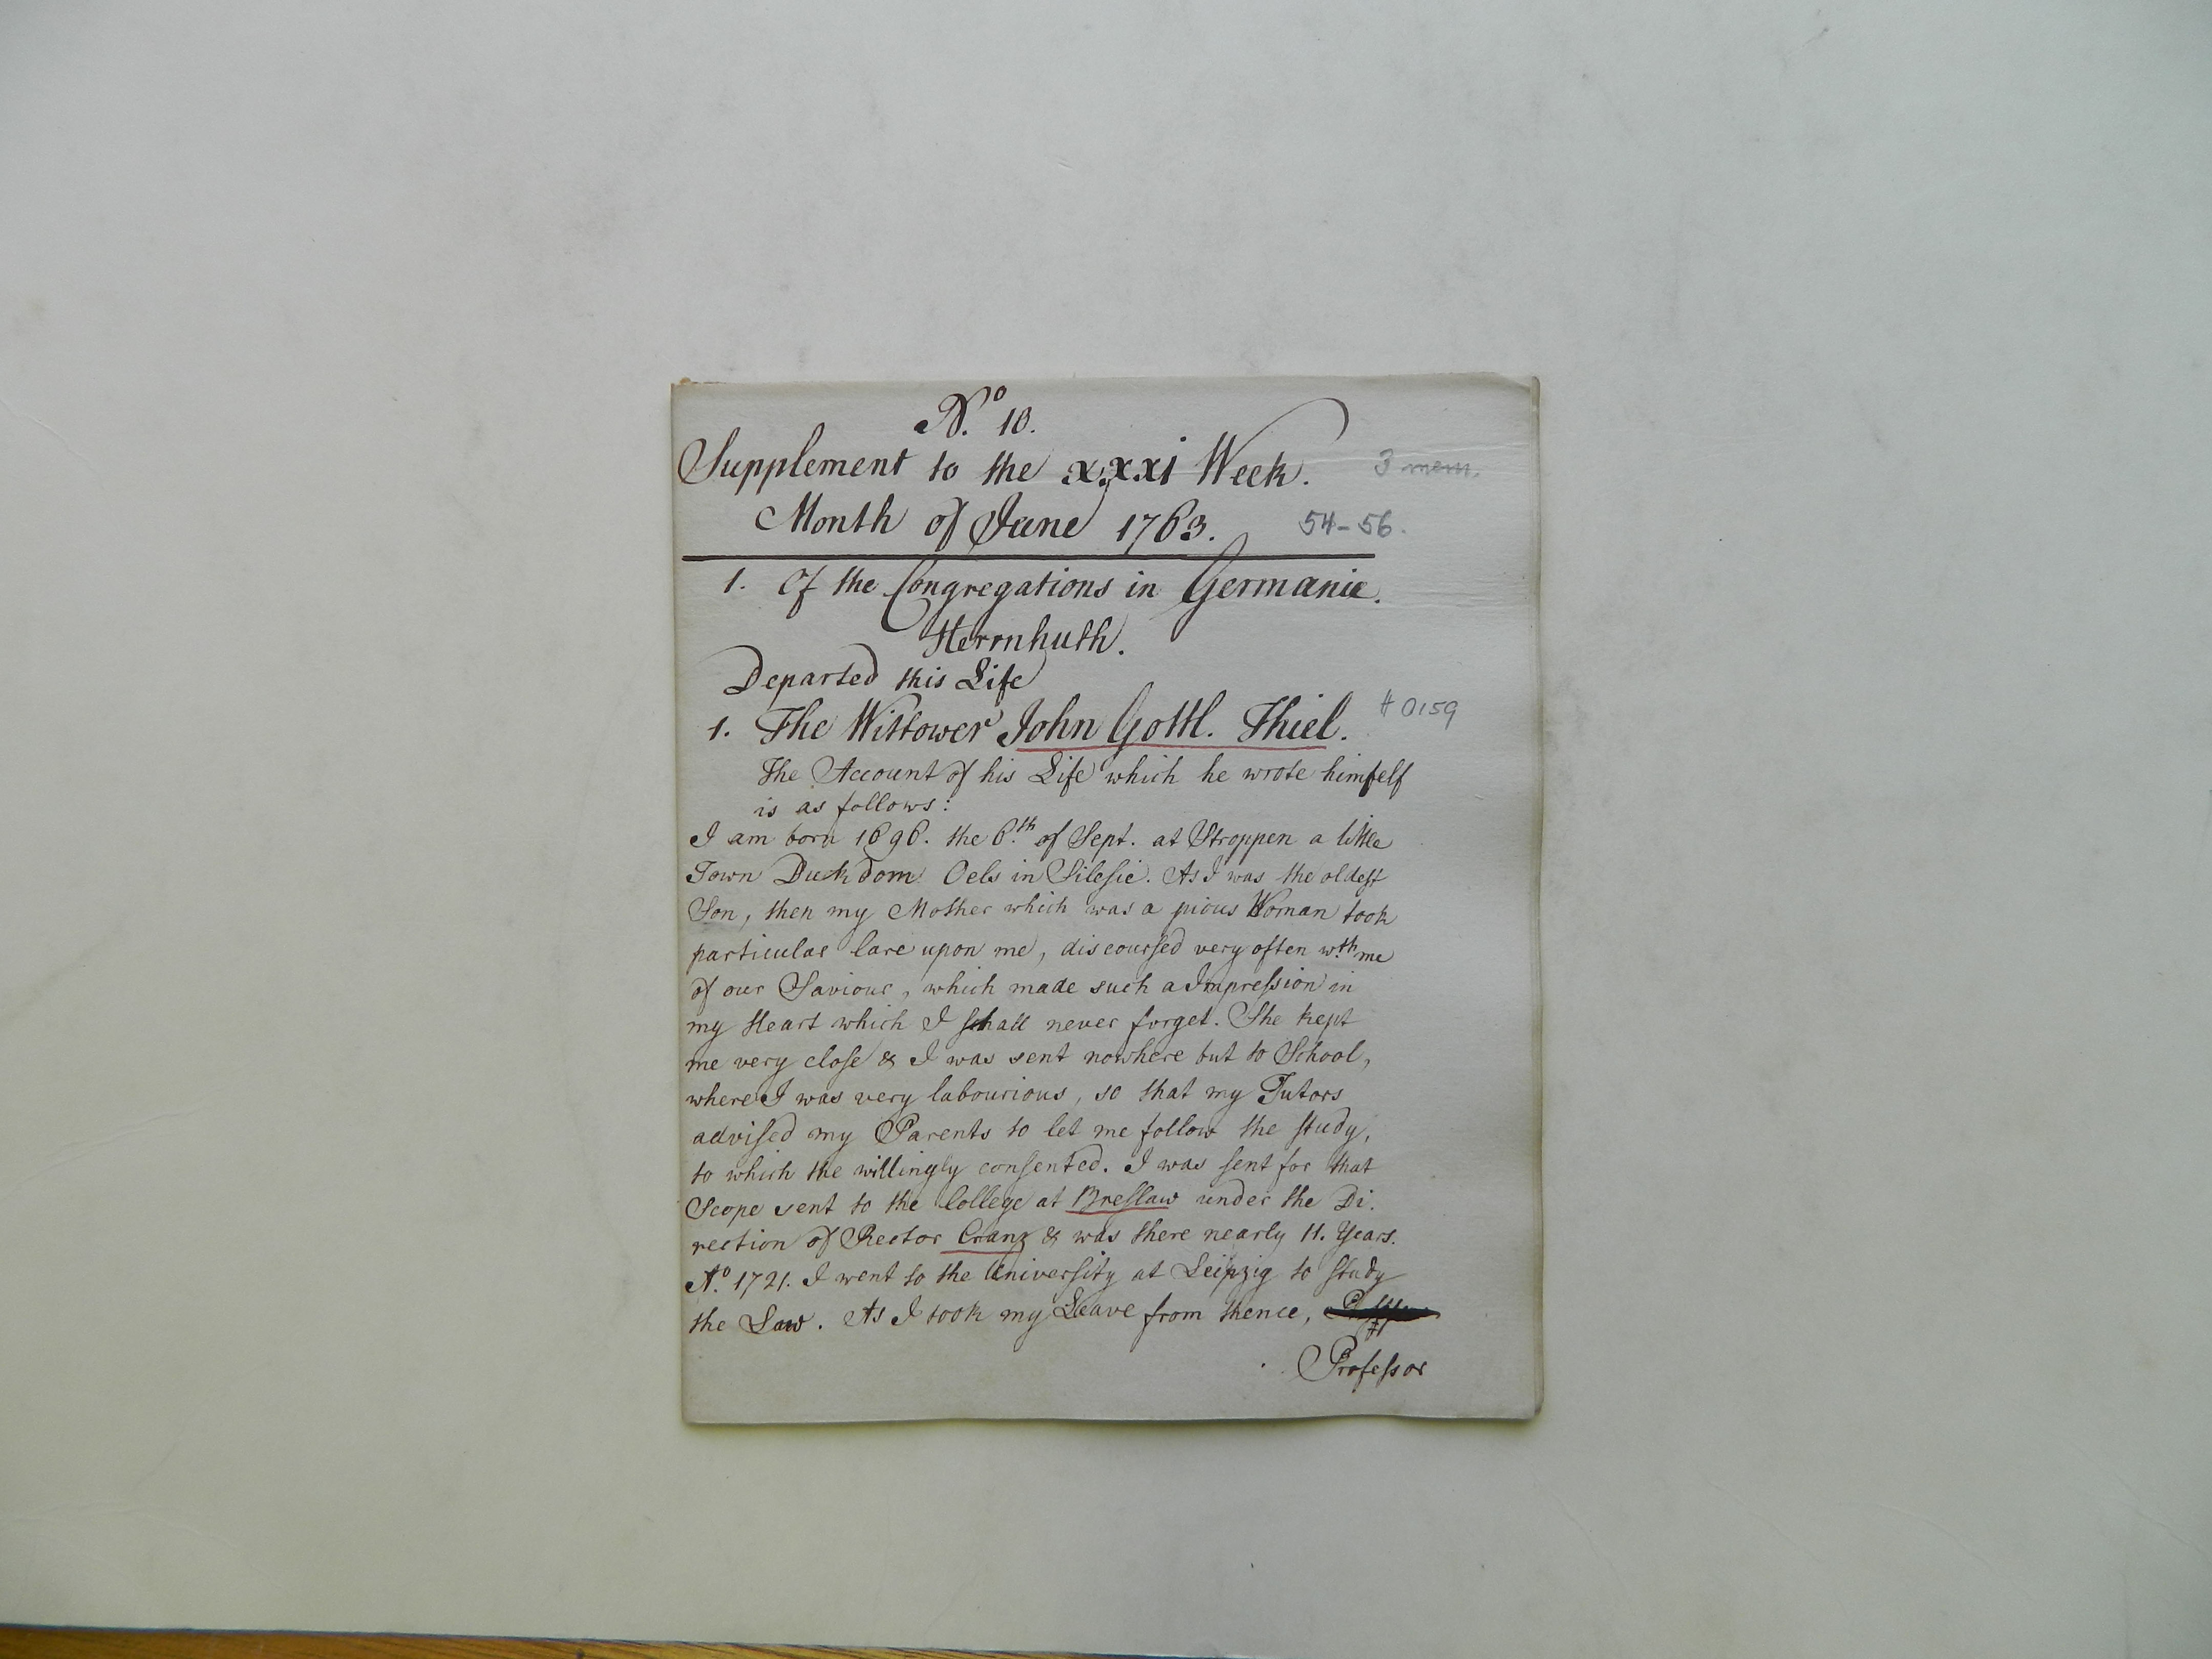 No. 10.
Supplement to the xxxi Week. 3 mem.
Month of June 1763. 54-56.
1. Of the Congregations in Germanie.
Herrnhuth.
Departed this Life
1. The Wittower John Gottl. Thiel. #0159
The Account of his Life which he wrote himself
is as follows:
I am born 1696. the 6.th of Sept. at Stroppen a little
Town Duckdom Oels in Silesie. As I was the oldest
Son, then my Mother which was a pious Woman took
particular Care upon me, discoursed very often wth. me
of our Saviour, which made such a Impression in
my Heart which I schall never forget. She kept
me very close & I was sent nowhere but to School,
where I was very labourious, so that my Tutors
advised my Parents to let me follow the study,
to which the willingly consented. I was sent for that
Scope sent to the College at Breslaw under the Di.
rection of Rector Cranz & was there nearly 11. Years.
Ao. 1721. I went to the University at Leipzig to study
the Law. As I took my Leave from thence,
Professor